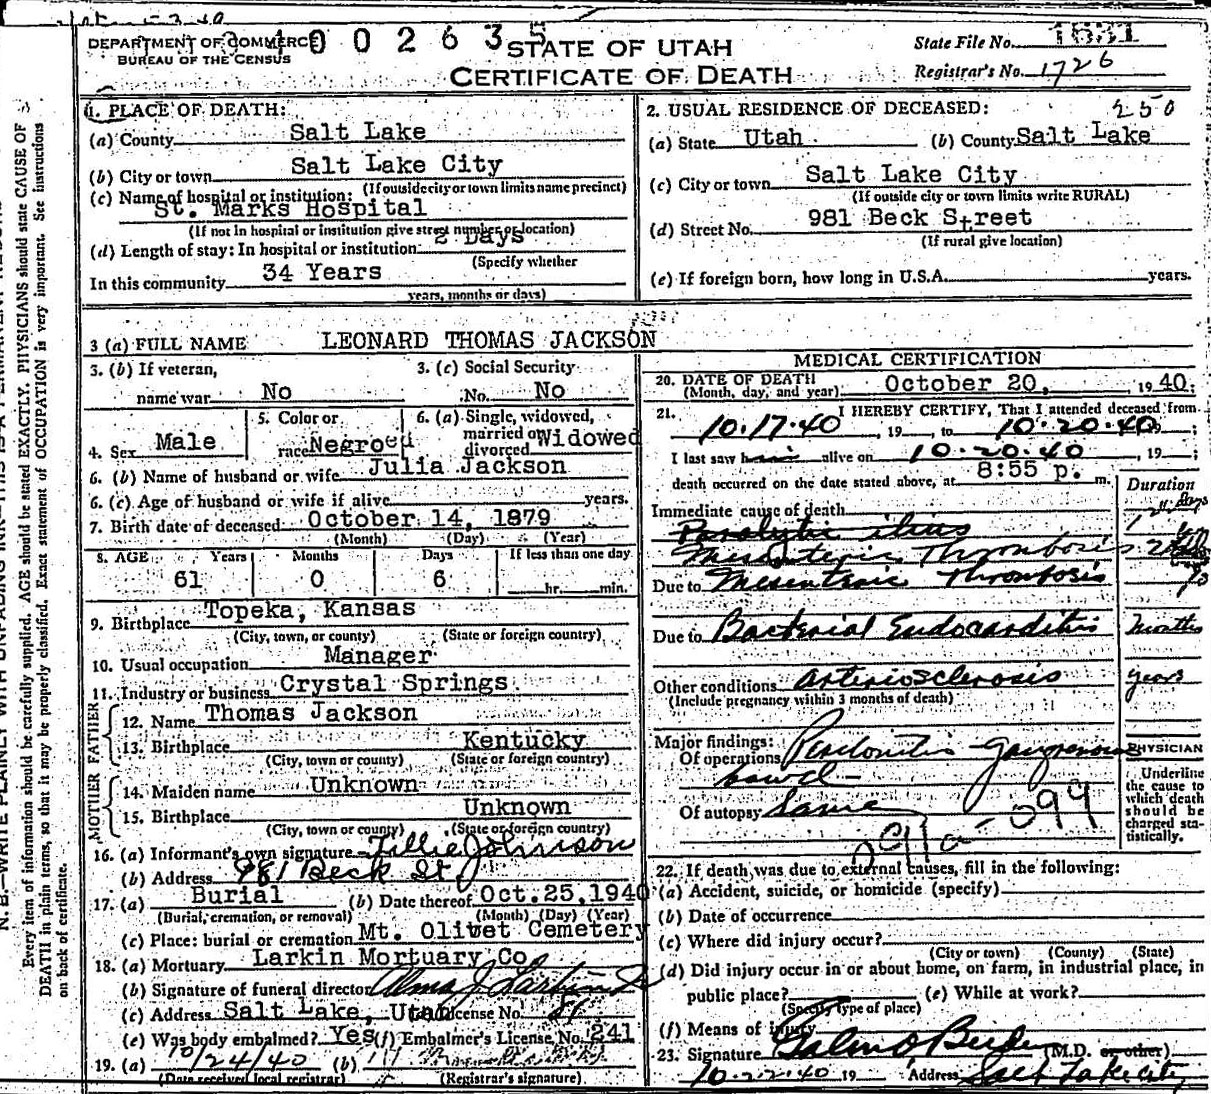 DEPARTMENT OF COMMERCE
BUREAU OF THE CENSUS
1002635
STATE OF UTAH
CERTIFICATE OF DEATH
State File No. 1631
Registrar's No. 1726
1. PLACE OF DEATH:
(a) County Salt Lake
(b) City or town Salt Lake City
(If outside city or town limits name precinct)
(c) Name of hospital or institution:
St. Marks Hospital
(If not in hospital or institution give street number or location)
(d) Length of stay: In hospital or institution 2 Days
(Specify whether
In this community 34 Years
years, months or days)
2. USUAL RESIDENCE OF DECEASED: 250
(a) State Utah (b) County Salt Lake
(c) City or town Salt Lake City
(If outside city or town limits write RURAL)
(d) Street No. 981 Beck Street
(If rural give location)
(e) If foreign born, how long in U.S.A. years.
3 (a) FULL NAME LEONARD THOMAS JACKSON
3. (b) If veteran, name war No
3. (c) Social Security No. No
4. Sex Male
5. Color or race Negroed
6. (a) Single, widowed, married or divorced Widowed
6. (b) Name of husband or wife Julia Jackson
6. (c) Age of husband or wife if alive years.
7. Birth date of deceased October 14, 1879
(Month) (Day) (Year)
8. AGE Years Months Days If less than one day
61 0 6 hr. min.
9. Birthplace Topeka, Kansas
(City, town, or county) (State or foreign country)
10. Usual occupation Manager
11. Industry or business Crystal Springs
FATHER
12. Name Thomas Jackson
13. Birthplace Kentucky
(City, town or county) (State or foreign country)
MOTHER
14. Maiden name Unknown
15. Birthplace Unknown
(City, town or county) (State or foreign country)
16. (a) Informant's own signature Tillie Johnson
(b) Address 981 Beck St.
17. (a) Burial (b) Date thereof Oct.25,1940
(Burial, cremation, or removal) (Month) (Day) (Year)
(c) Place: burial or cremation Mt. Olivet Cemetery
18. (a) Mortuary Larkin Mortuary Co
(b) Signature of funeral director Alma J Larkin
(c) Address Salt Lake, Utah License No.
(e) Was body embalmed? Yes (f) Embalmer's License No. 241
19. (a) 10/24/40 (b)
(Date received local registrar) (Registrar's signature)
MEDICAL CERTIFICATION
20. DATE OF DEATH October 20, 1940.
(Month, day, and year)
21. I HEREBY CERTIFY, That I attended deceased from
10.17.40, 19 , to 10.20.40 ;
I last saw him alive on 10.20.40, 19 ;
death occurred on the date stated above, at 8:55 p. m.
Duration
Immediate cause of death
Paralytic ilius
Mesenteric Thrombosis
Due to Mesenteric Thrombosis
Due to Bacterial Endocarditis months
Other conditions Arteriosclerosis years
(Include pregnancy within 3 months of death)
Major findings:
Of operations Peritonitis - gangrenous
bowel -
Of autopsy Same
099
PHYSICIAN
Underline
the cause to
which death
should be
charged sta-
tistically.
22. If death was due to external causes, fill in the following:
(a) Accident, suicide, or homicide (specify)
(b) Date of occurrence
(c) Where did injury occur?
(City or town) (County) (State)
(d) Did injury occur in or about home, on farm, in industrial place, in
public place? (e) While at work?
(Specify type of place)
(f) Means of injury
23. Signature (M.D. or other)
10-22-40 19 Address Salt Lake City
Every item of information should be carefully supplied. AGE should be stated EXACTLY. PHYSICIANS should state CAUSE OF
DEATH in plain terms, so that it may be properly classified. Exact statement of OCCUPATION is very important. See instructions
on back of certificate.